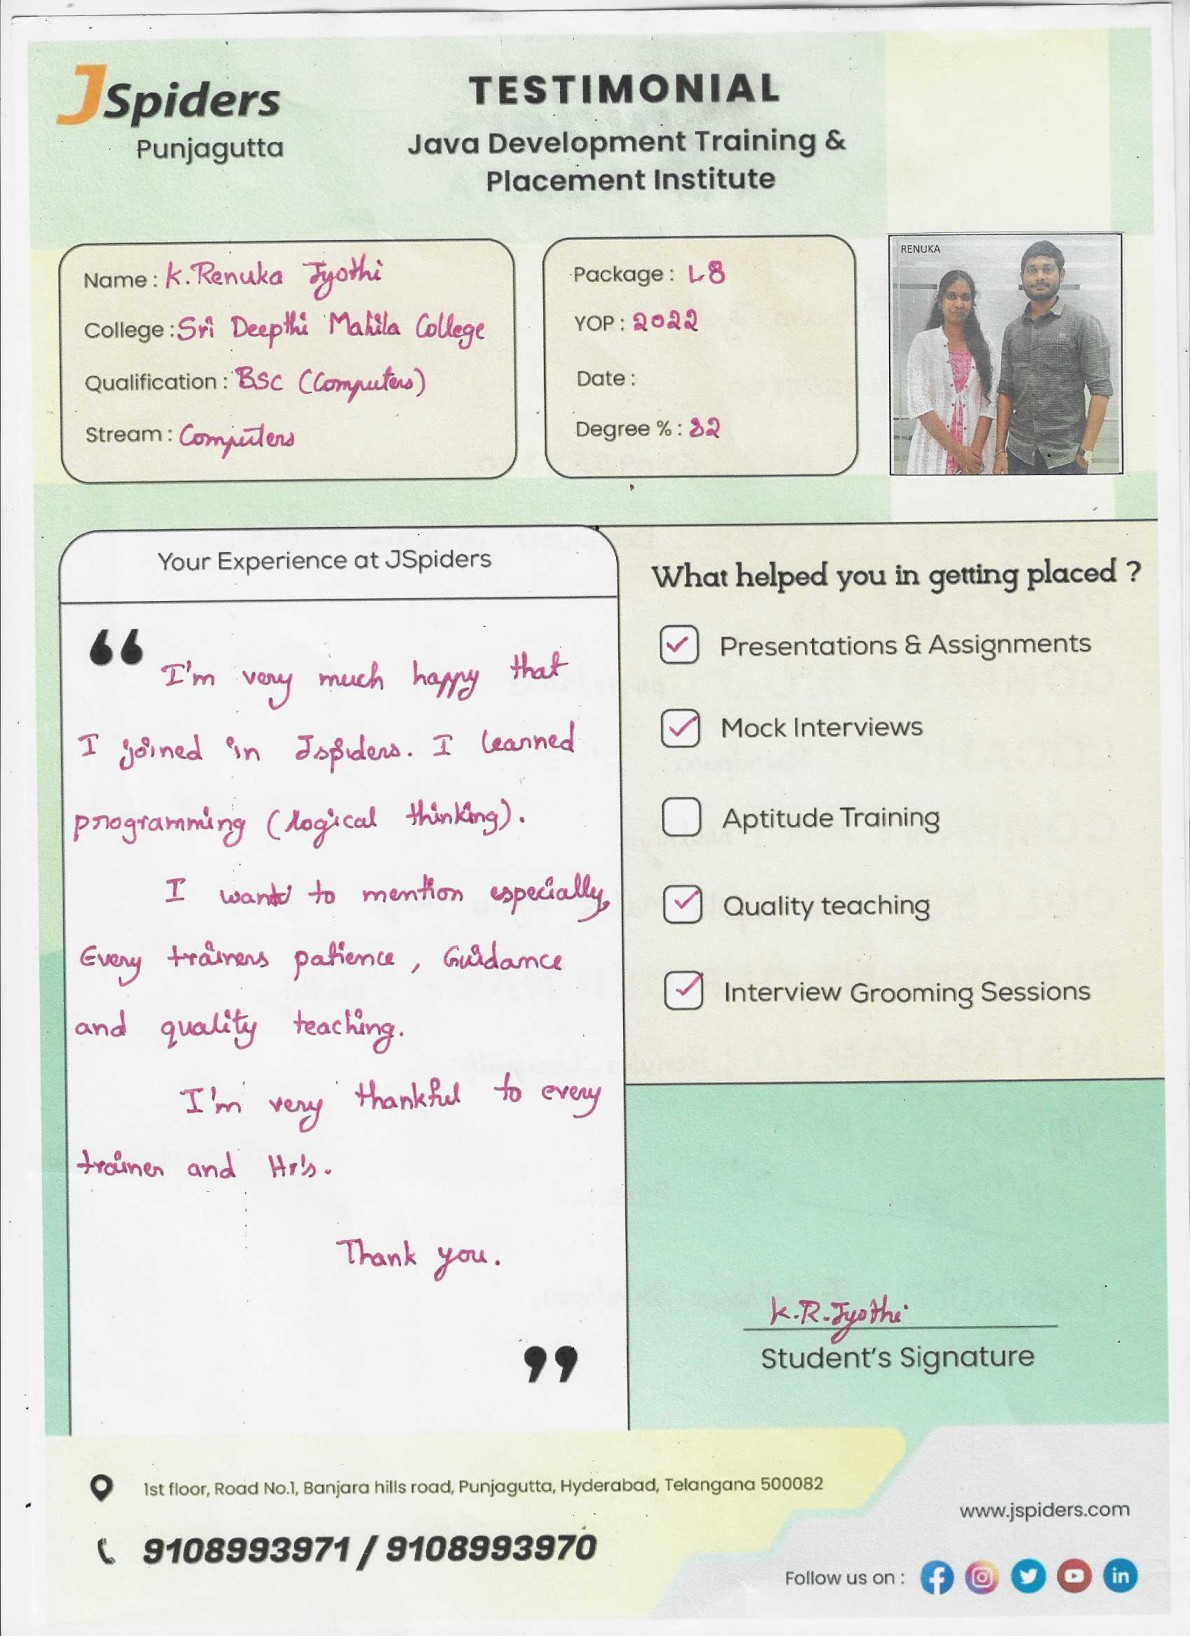 JSpiders
Punjagutta
TESTIMONIAL
Java Development Training &
Placement Institute
Name : K. Renuka Jyothi
College : Sri Deepthi Mahila College
Qualification : BSC (Computers)
Stream : Computers
Package : L8
YOP : 2022
Date :
Degree % : 82
RENUKA
Your Experience at JSpiders
What helped you in getting placed ?
“ I'm very much happy that
I joined in Jspiders. I learned
programming (logical thinking).
I want to mention especially,
Every trainers patience, Guidance
and quality teaching.
I'm very thankful to every
trainer and Hr's.
Thank you.
”
Presentations & Assignments
Mock Interviews
Aptitude Training
Quality teaching
Interview Grooming Sessions
K.R.Jyothi
Student's Signature
1st floor, Road No.1, Banjara hills road, Punjagutta, Hyderabad, Telangana 500082
9108993971 / 9108993970
www.jspiders.com
Follow us on :